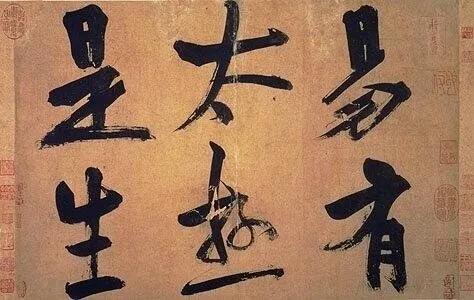 易有
太极
是生